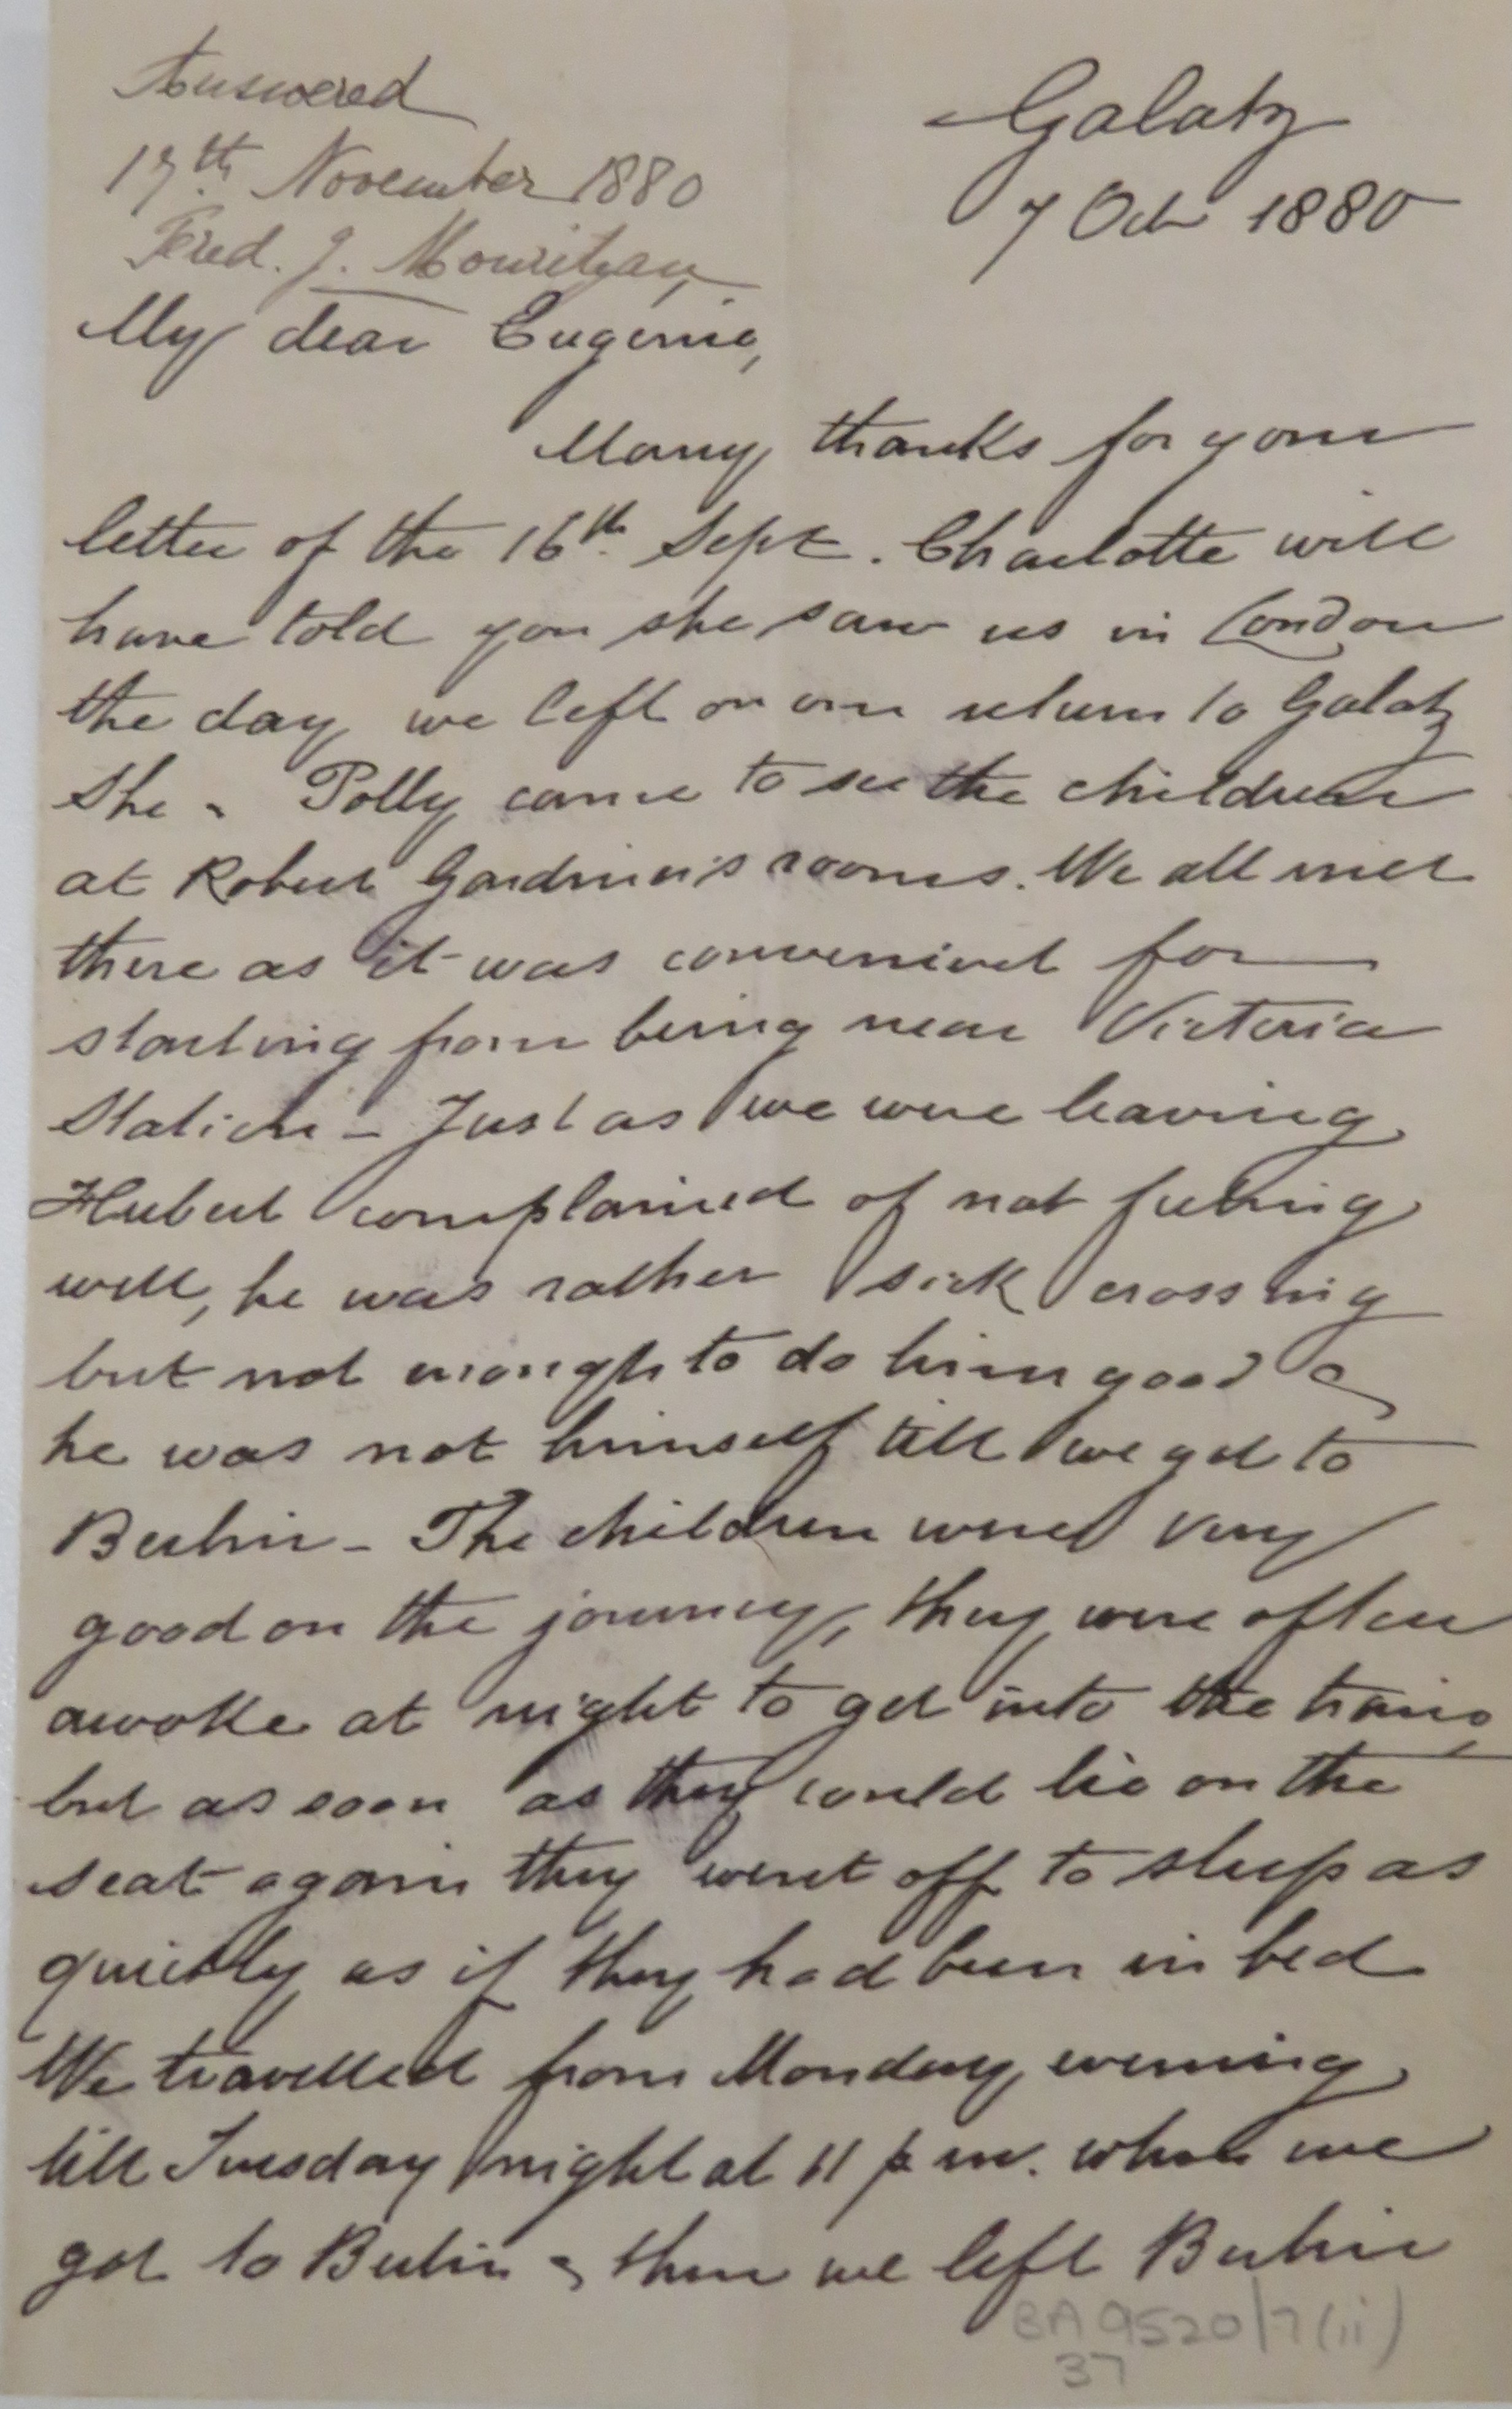 Answered
17th November 1880
Fred. J.
Galatz
7 Oct 1880
My dear Eugenie,
Many thanks for your
letter of the 16th Sept. Charlotte will
have told you she saw us in London
the day we left on our return to Galatz
She & Polly came to see the children
at Robert Gardiner's rooms. We all met
there as it was convenient for
starting from being near Victoria
Station - Just as we were leaving
Hubert complained of not feeling
well, he was rather sick crossing
but not enough to do him good &
he was not himself till we got to
Berlin - The children were very
good on the journey, they were often
awoke at night to get into the trains
but as soon as they could lie on the
seat again they went off to sleep as
quickly as if they had been in bed
We travelled from Monday evening
till Tuesday night at 11 p.m. when we
got to Berlin & then we left Berlin
BA 9520/7(ii)
37